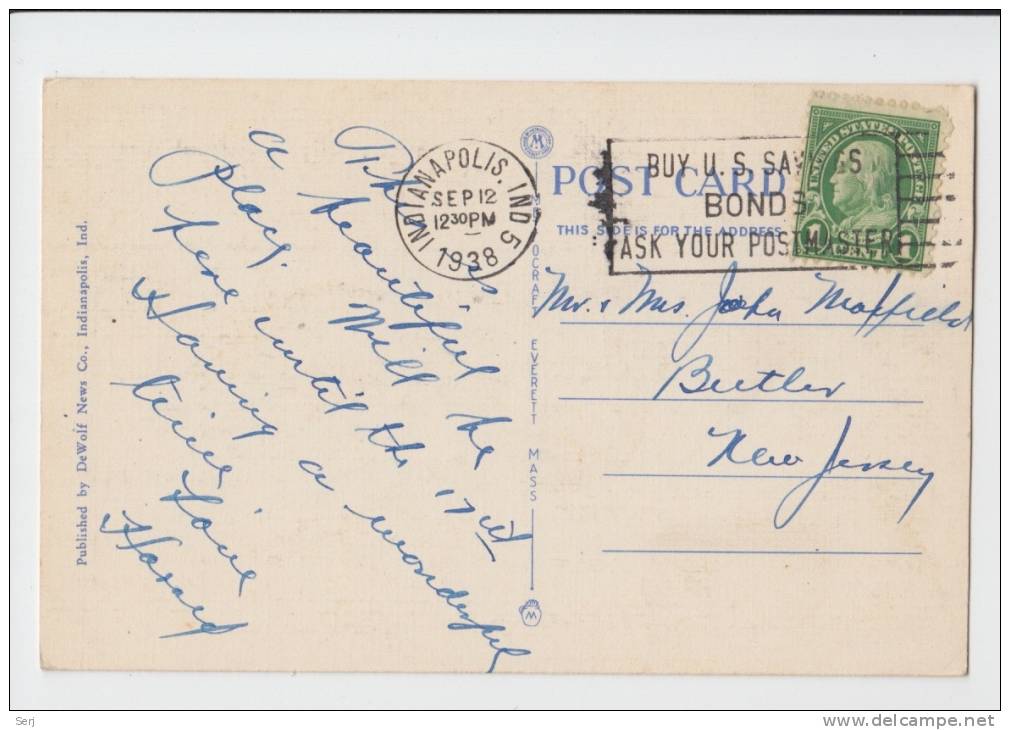 INDIANAPOLIS, IND 5
SEP 12
12 30 PM
1938
BUY U.S. SAVINGS
BONDS
ASK YOUR POSTMASTER
UNITED STATES POSTAGE
1 CENT 1
M
POST CARD
THIS SIDE IS FOR THE ADDRESS
This is
a beautiful
place. Will be
here until the 17th
Having a wonderful
time. Love
Mr. & Mrs. John
Butler
New Jersey
EVERETT MASS
M
Published by DeWolf News Co., Indianapolis, Ind.
Serj
www.delcampe.net